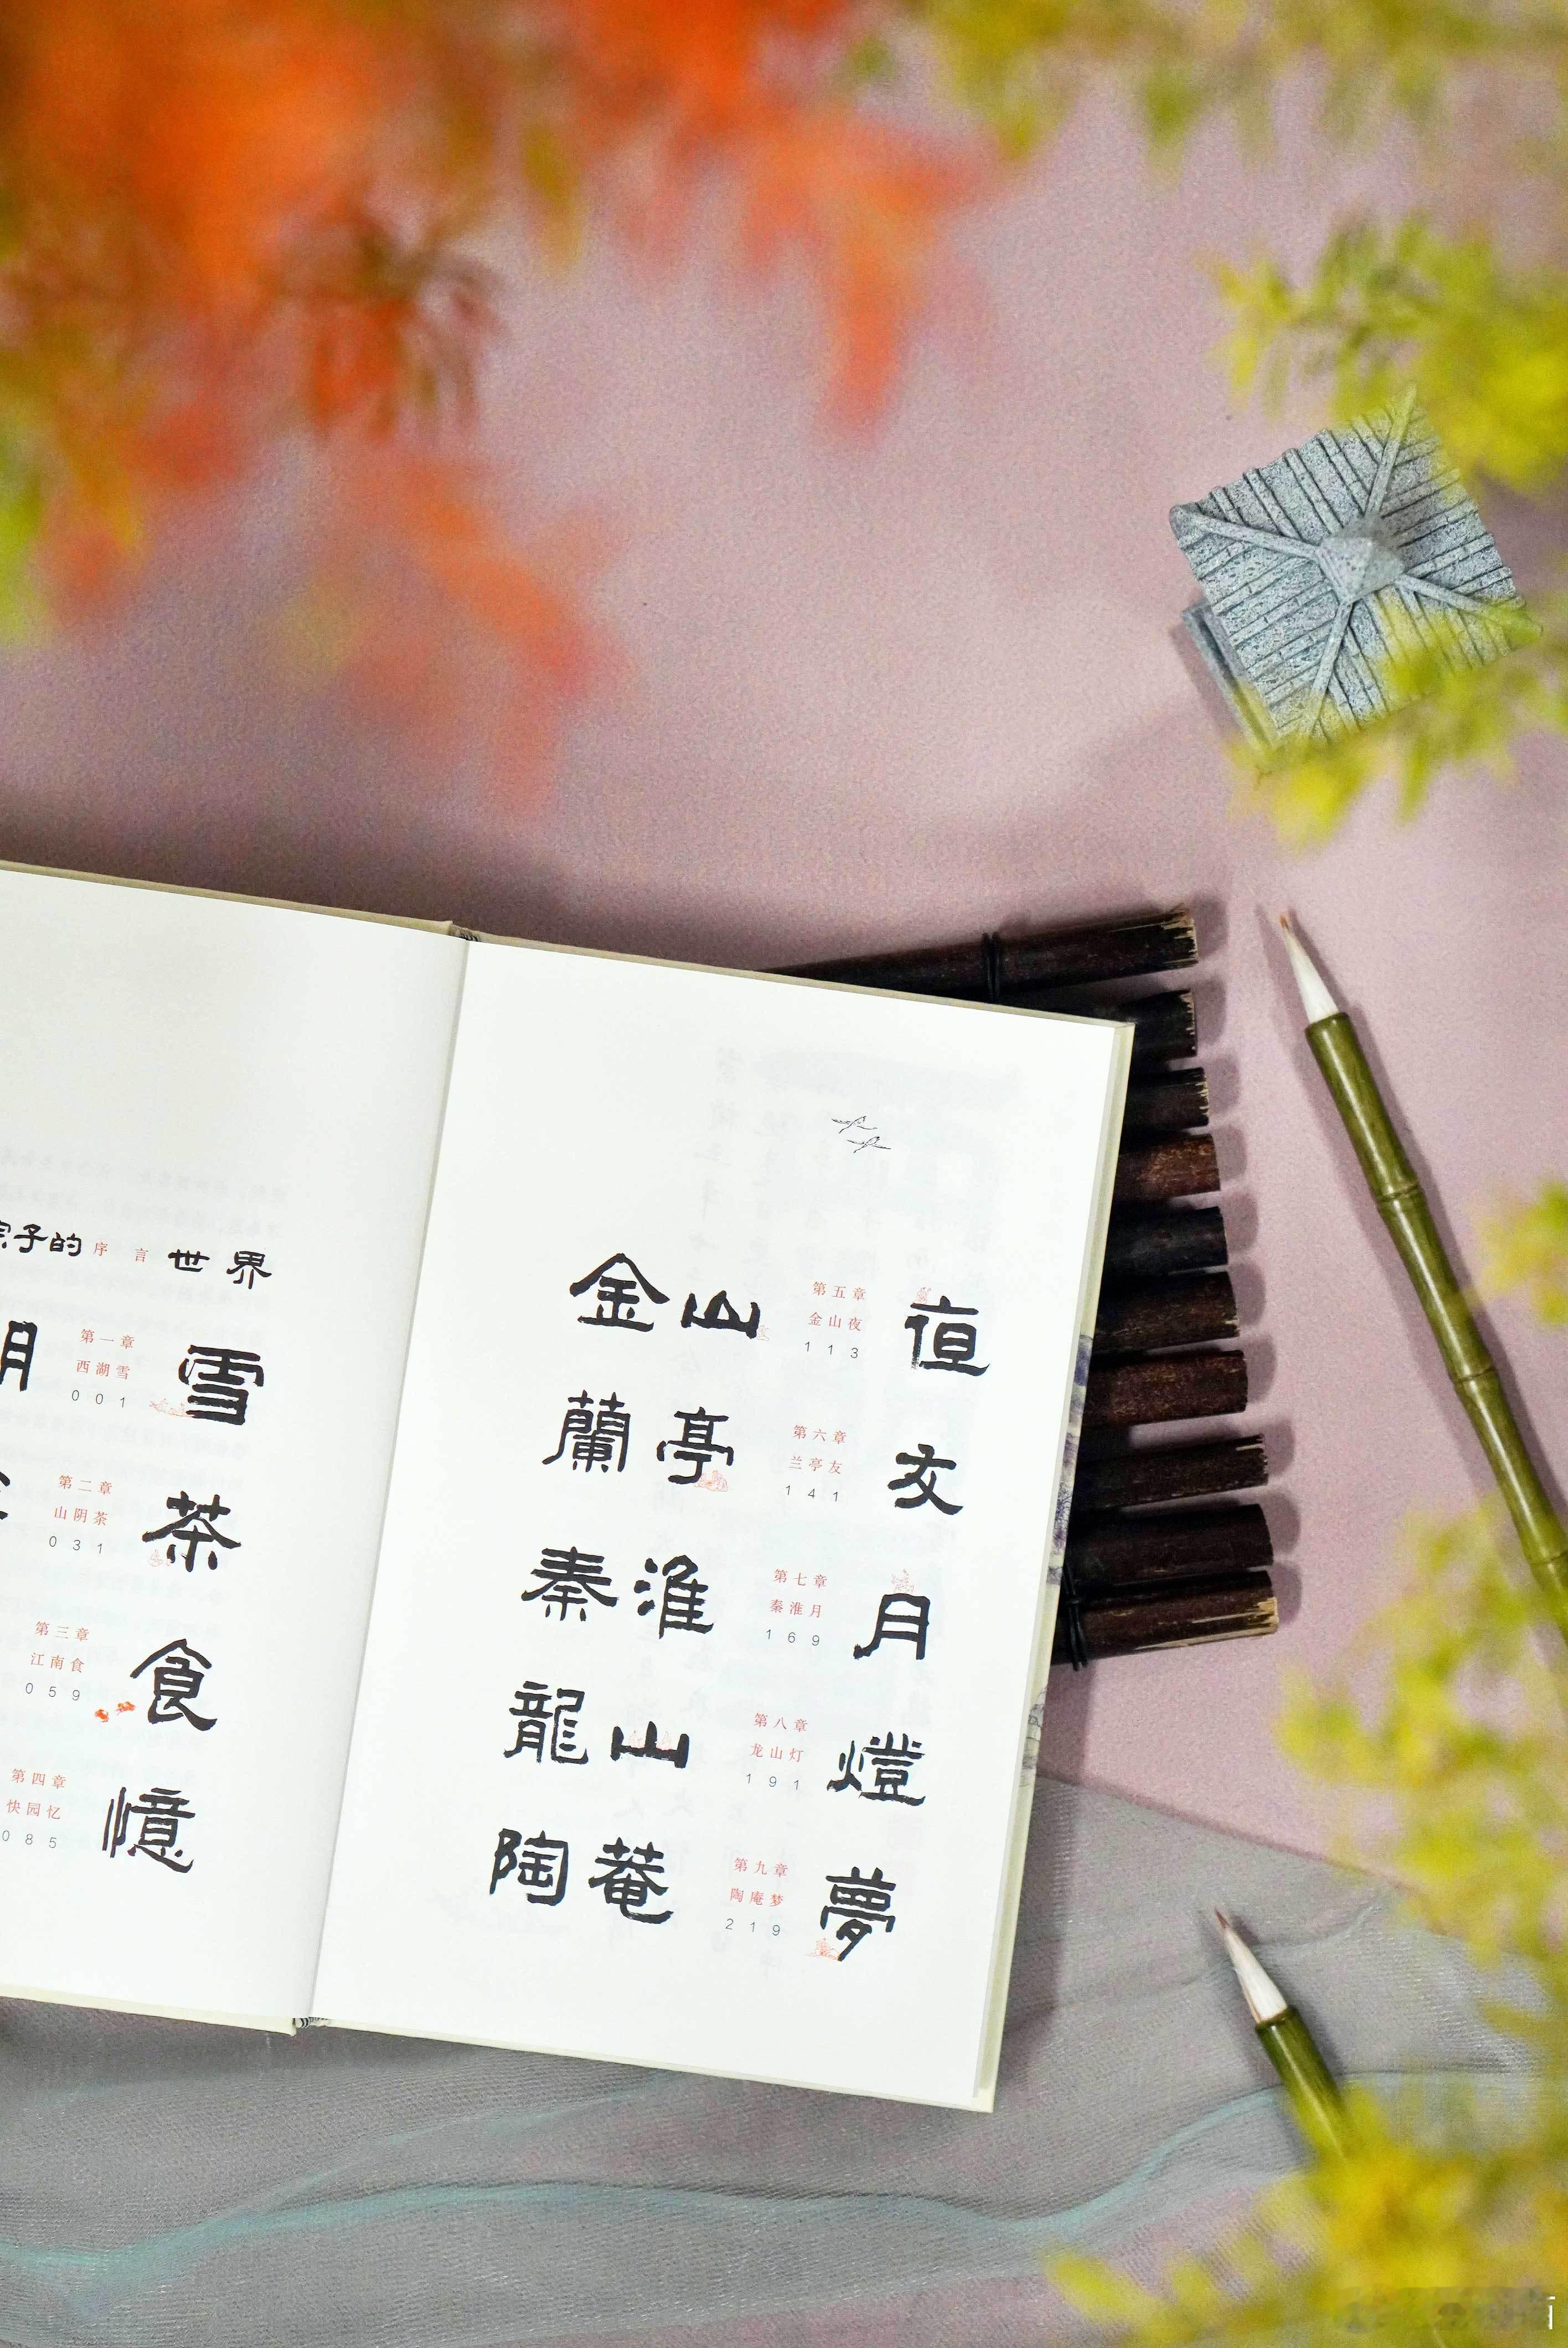 子的 序言 世界
第一章
西湖雪
001
雪
第二章
山阴茶
031
茶
第三章
江南食
059
食
第四章
快园忆
085
憶
金山
第五章
金山夜
113
亱
蘭亭
第六章
兰亭友
141
友
秦淮
第七章
秦淮月
169
月
龍山
第八章
龙山灯
191
燈
陶菴
第九章
陶庵梦
219
夢